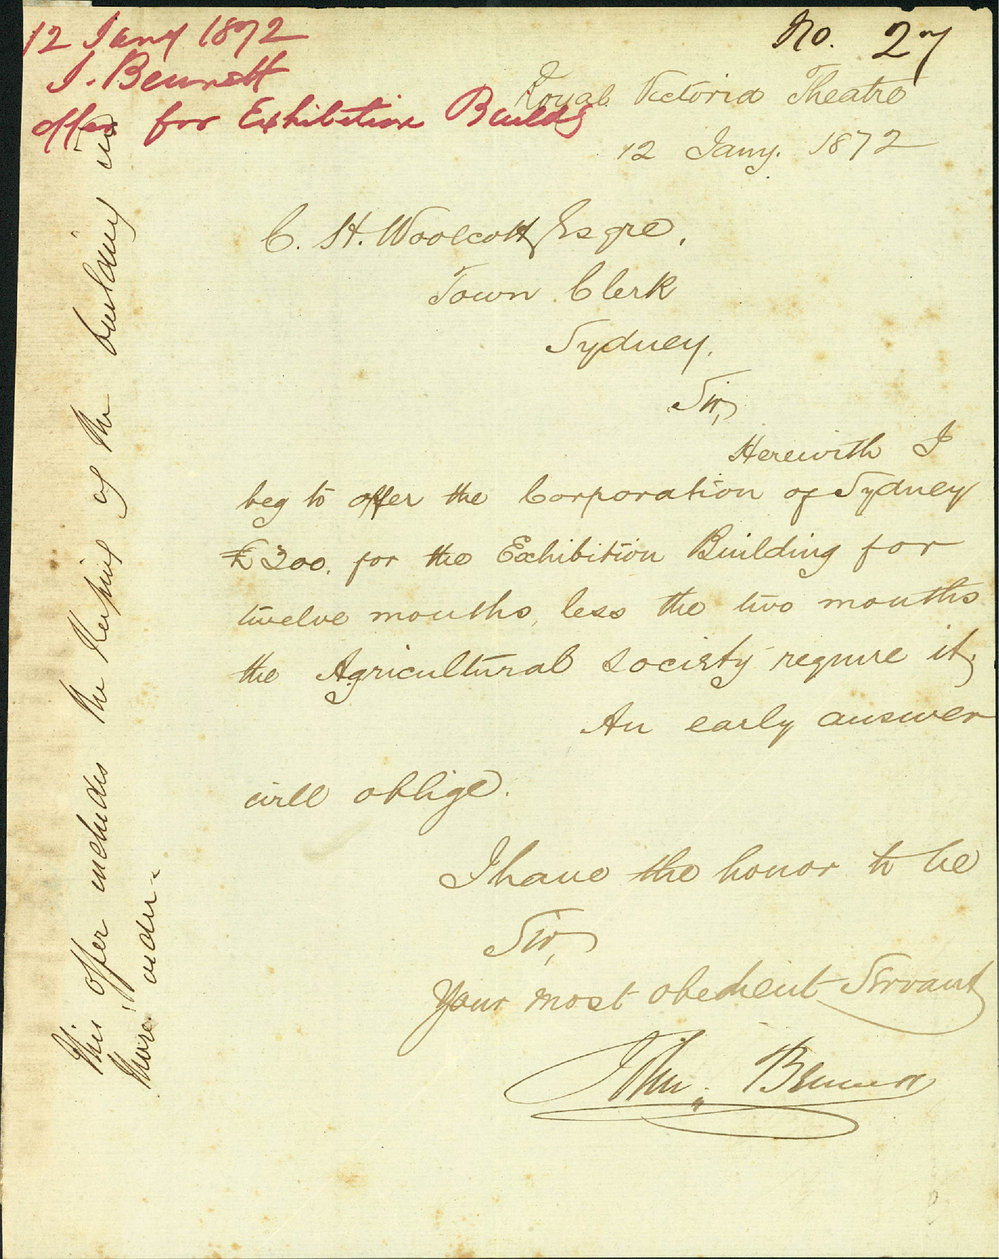 12 Jany 1872
J. Bennett
offer for Exhibition Buildg
No. 27
Royal Victoria Theatre
12 Jany. 1872
C. H. Woolcott Esqre.
Town Clerk
Sydney.
Sir,
Herewith I
beg to offer the Corporation of Sydney
£300. for the Exhibition Building for
twelve months, less the two months
the Agricultural Society require it,
An early answer
will oblige.
I have the honor to be
Sir,
Your most obedient Servant
John Bennett
This offer includes the Keeping of the building in
thoro' order.